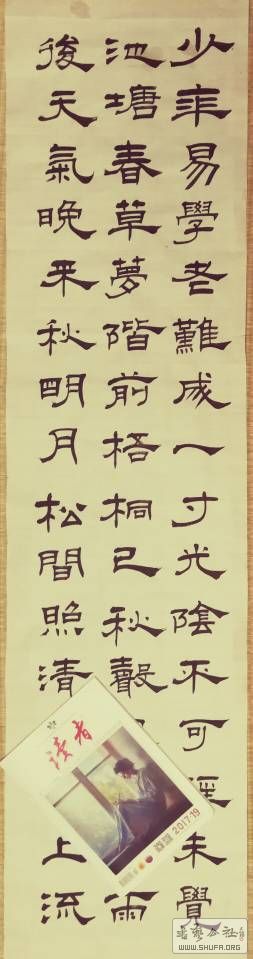 少年易學老難成一寸光陰不可輕未覺
池塘春草夢階前梧桐已秋聲雨
後天氣晚来秋明月松間照清上流
读者
2017·19
WWW.SHUFA.ORG